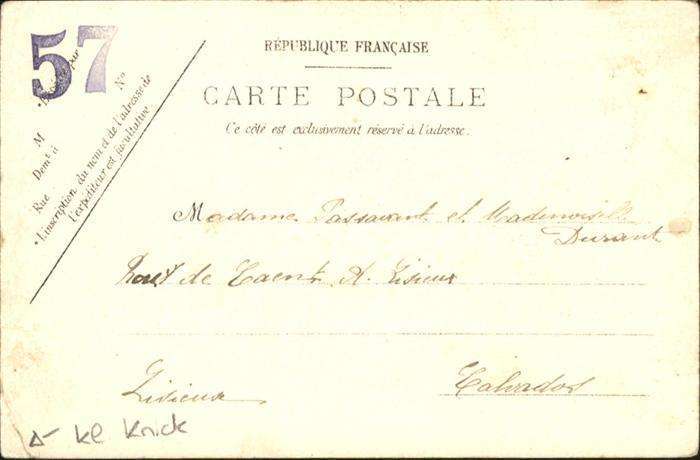 57
RÉPUBLIQUE FRANÇAISE
CARTE POSTALE
Ce côté est exclusivement réservé à l'adresse.
par
No
M
Demt à
Rue
L'inscription du nom et de l'adresse de
l'expéditeur est facultative
Madame Passavant et Mademoiselle
Durant
de Caen A. Lisieux
Lisieux
Calvados
kl Knick